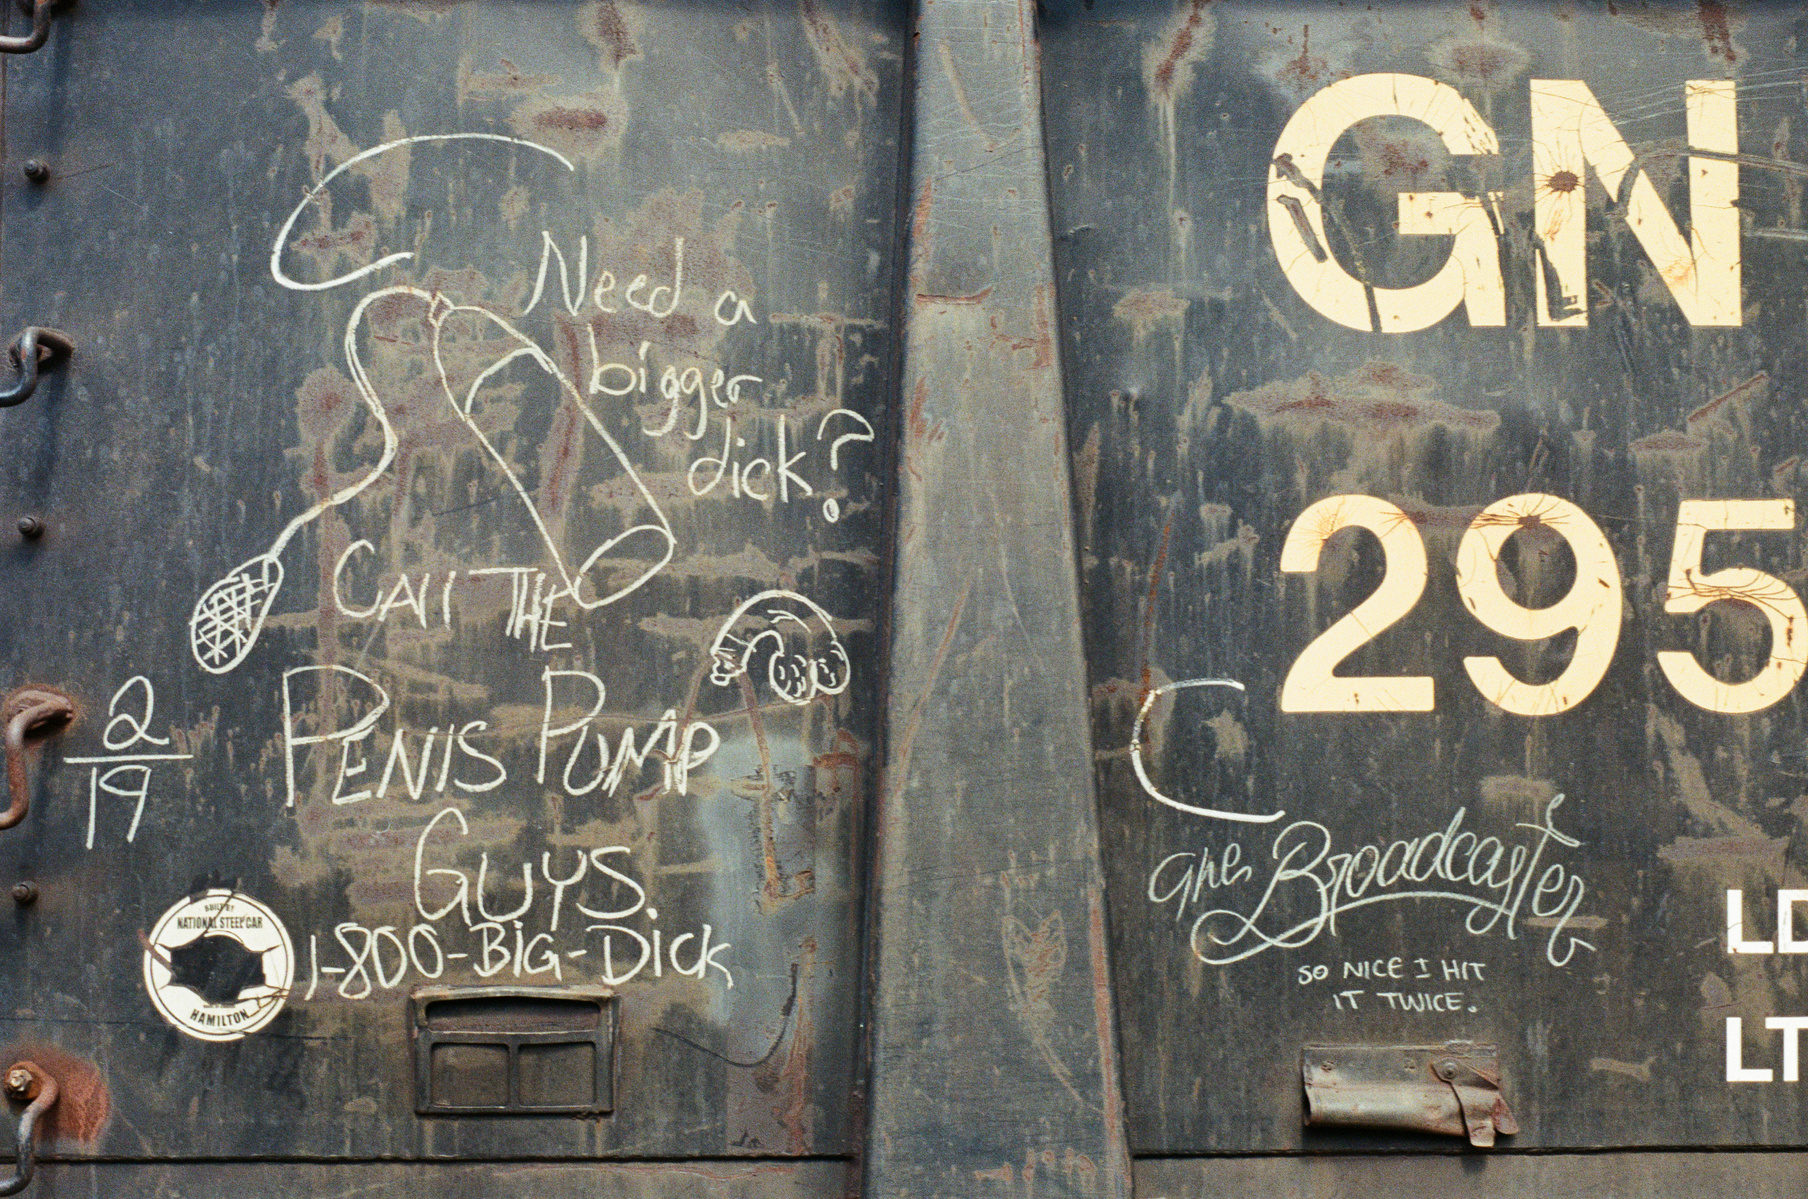 Need a
bigger
dick?
CAll THE
PENIS PUMP
GUYS.
1-800-BIG-DicK
2
19
BUILT BY
NATIONAL STEEL CAR
HAMILTON
GN
295
Broadcaster
SO NICE I HIT
IT TWICE.
LD
LT